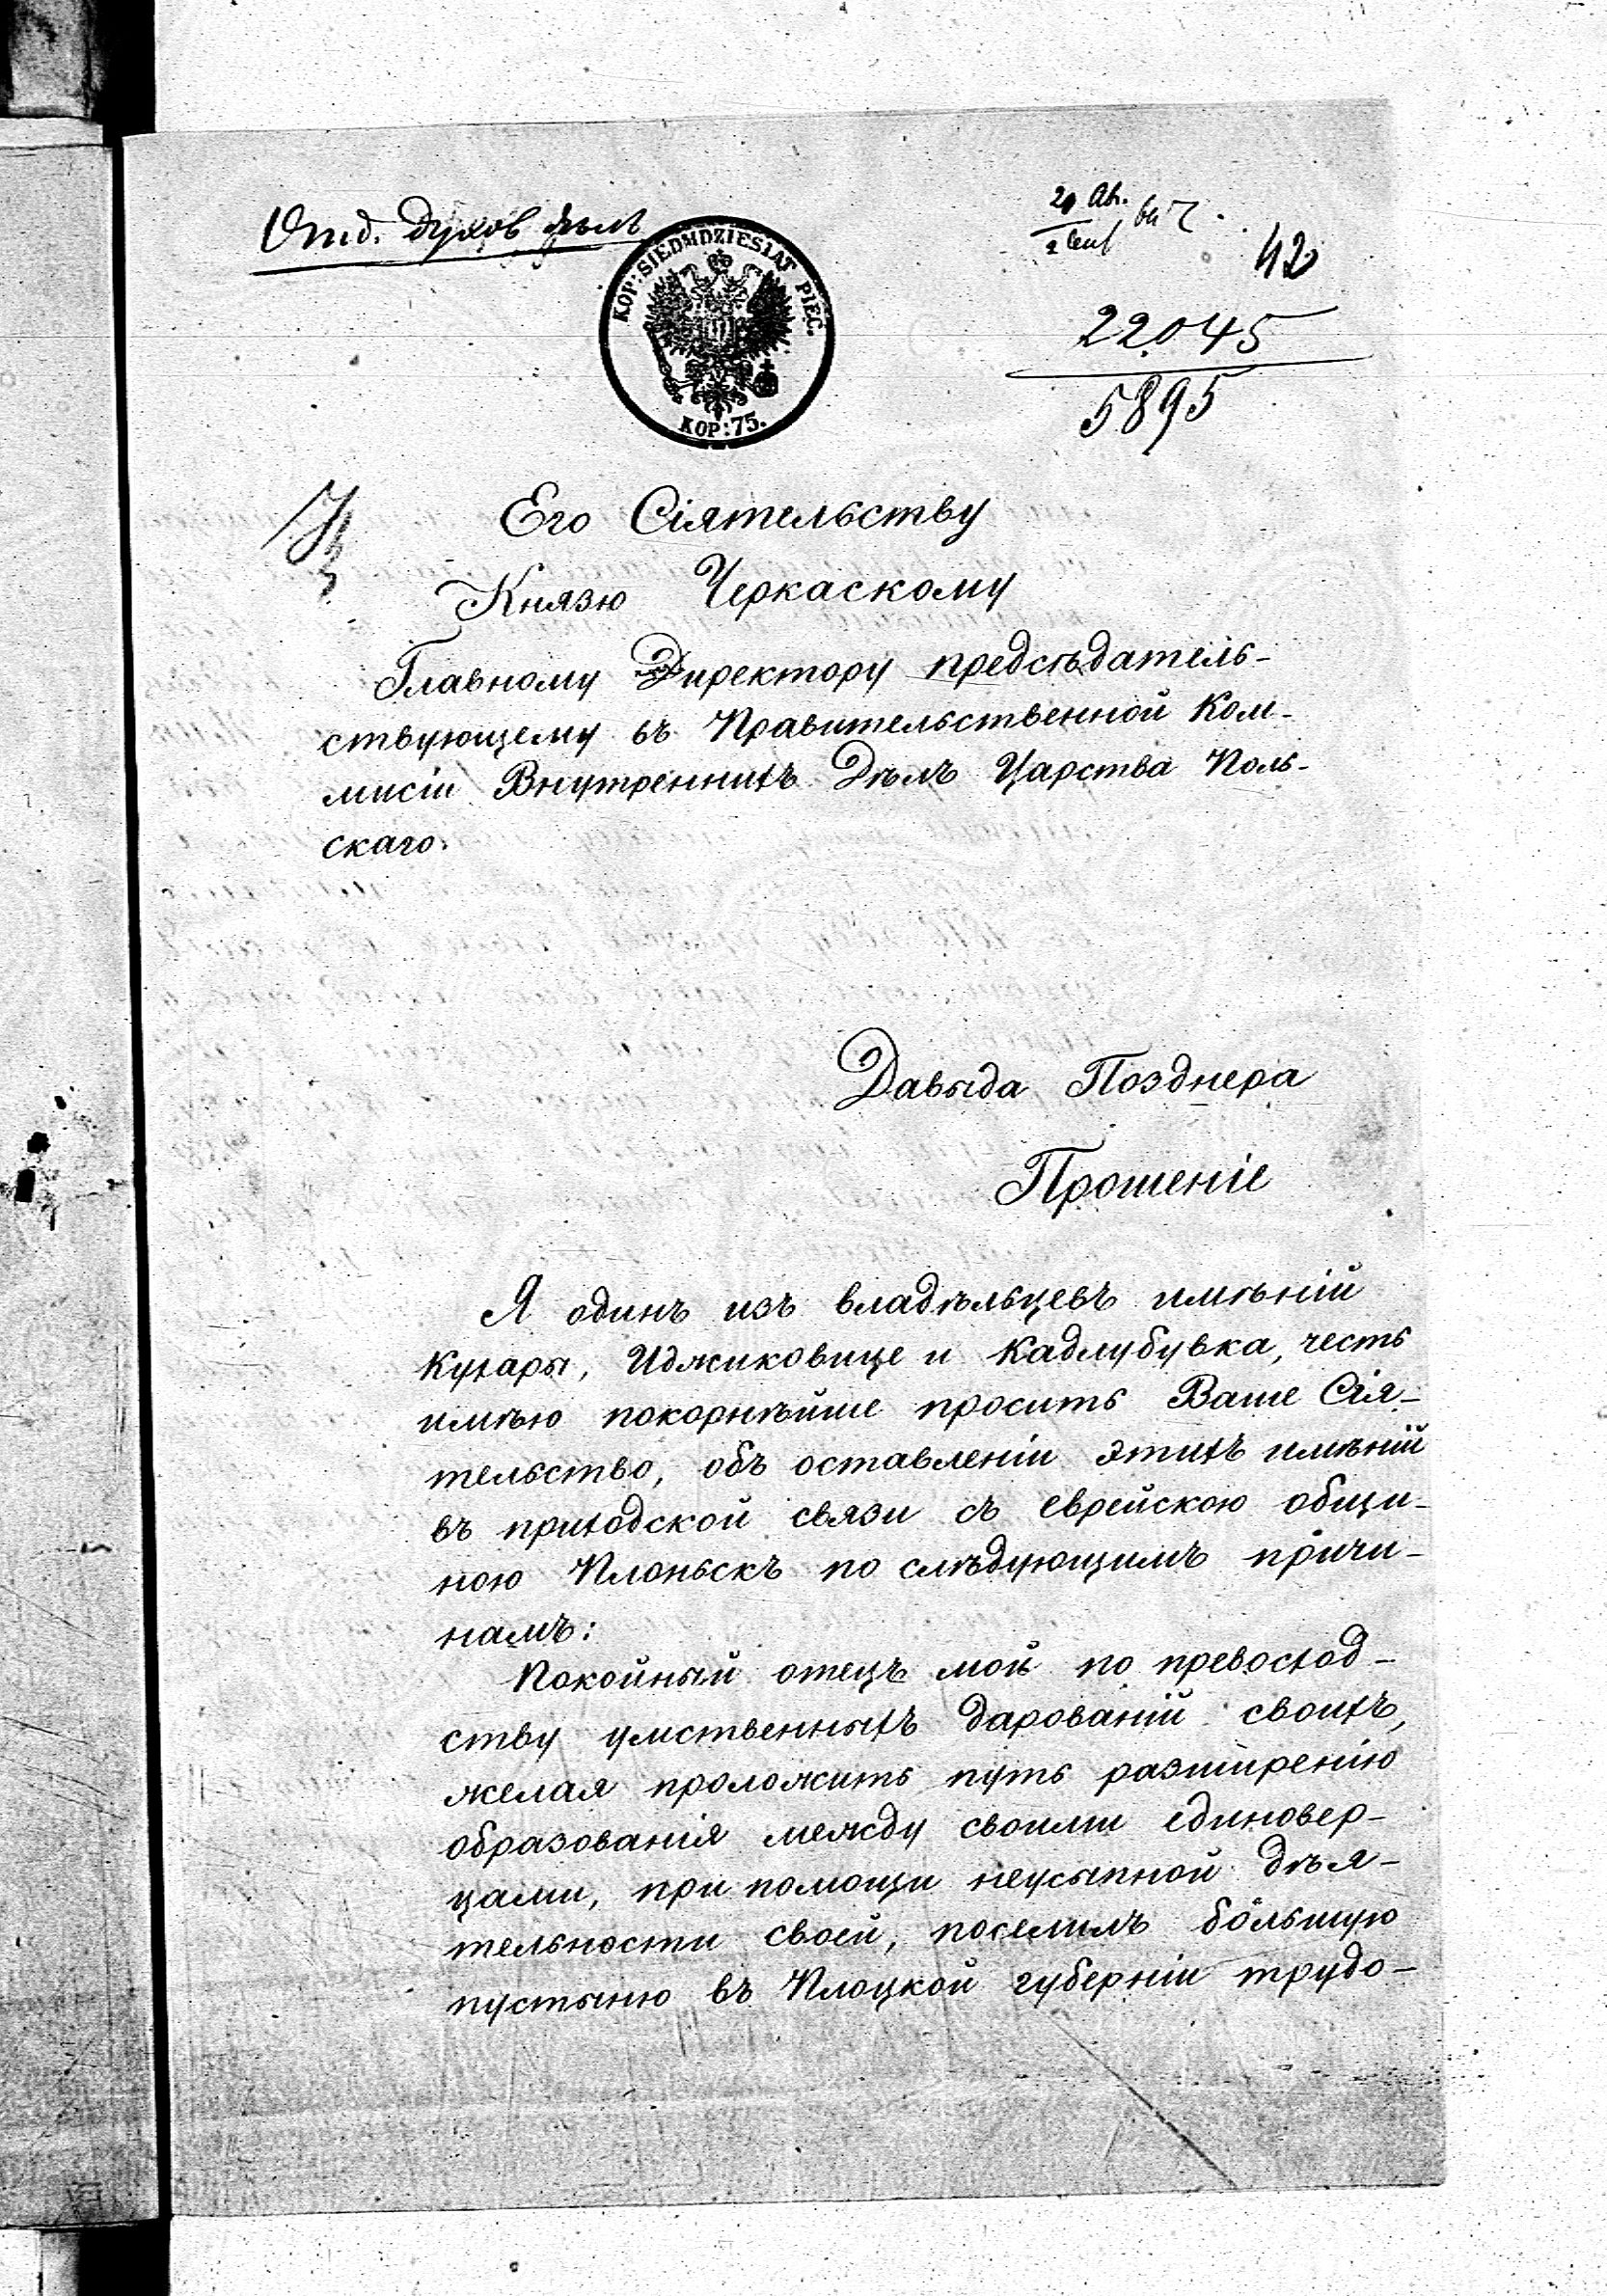 Отд. Духов дѣлъ
42
22045
5895
KOP: SIEDMDZIESIAT PIĘC.
KOP: 75.
Его Сіятельству
Князю Черкаскому
Главному Директору предсѣдатель-
ствующему въ Правительственной Ком-
мисіи Внутреннихъ Дѣлъ Царства Поль-
скаго.
Давыда Позднера
Прошеніе
Я одинъ изъ владѣльцевъ имѣній
Кухары, Иджиковице и Кадлубувка, честь
имѣю покорнѣйше просить Ваше Сія-
тельство, объ оставленіи этихъ имѣній
въ приходской связи съ еврейскою общи-
ною Плоньскъ по слѣдующимъ причи-
намъ:
Покойный отецъ мой по превосход-
ству умственныхъ дарованій своихъ,
желая проложить путь разширенію
образованія между своими единовер-
цами, при помощи неусыпной дѣя-
тельности своей, поселилъ большую
пустыню въ Плоцкой губерніи трудо-